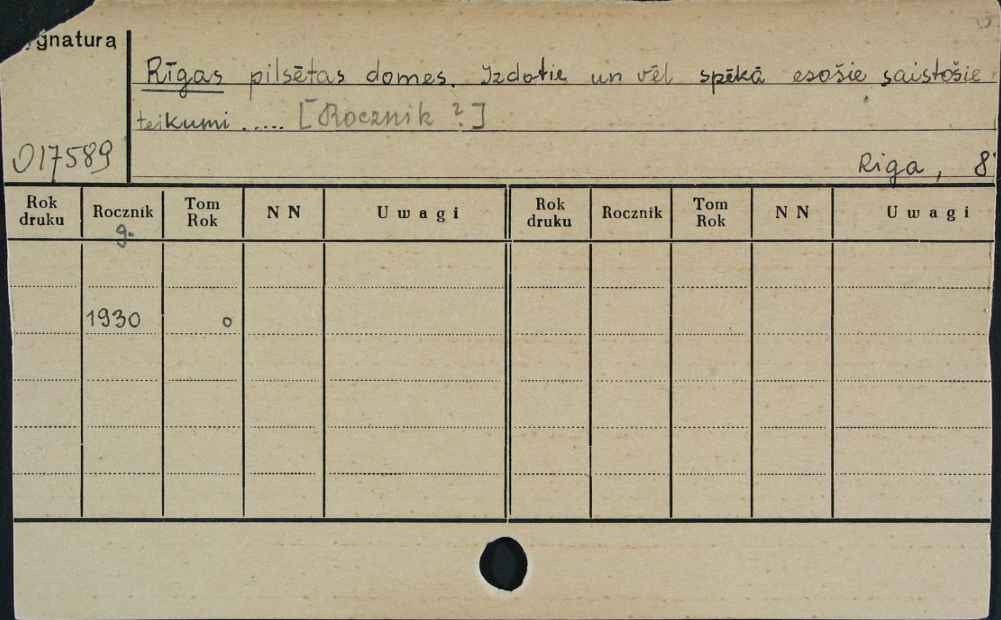 ygnatura
Rīgas pilsētas domes. Izdotie un vēl spēkā esošie saistošie
teikumi ..... [Rocznik ?]
017589
Riga, 8°
Rok druku Rocznik Tom Rok NN Uwagi Rok druku Rocznik Tom Rok NN Uwagi
g.
1930 0